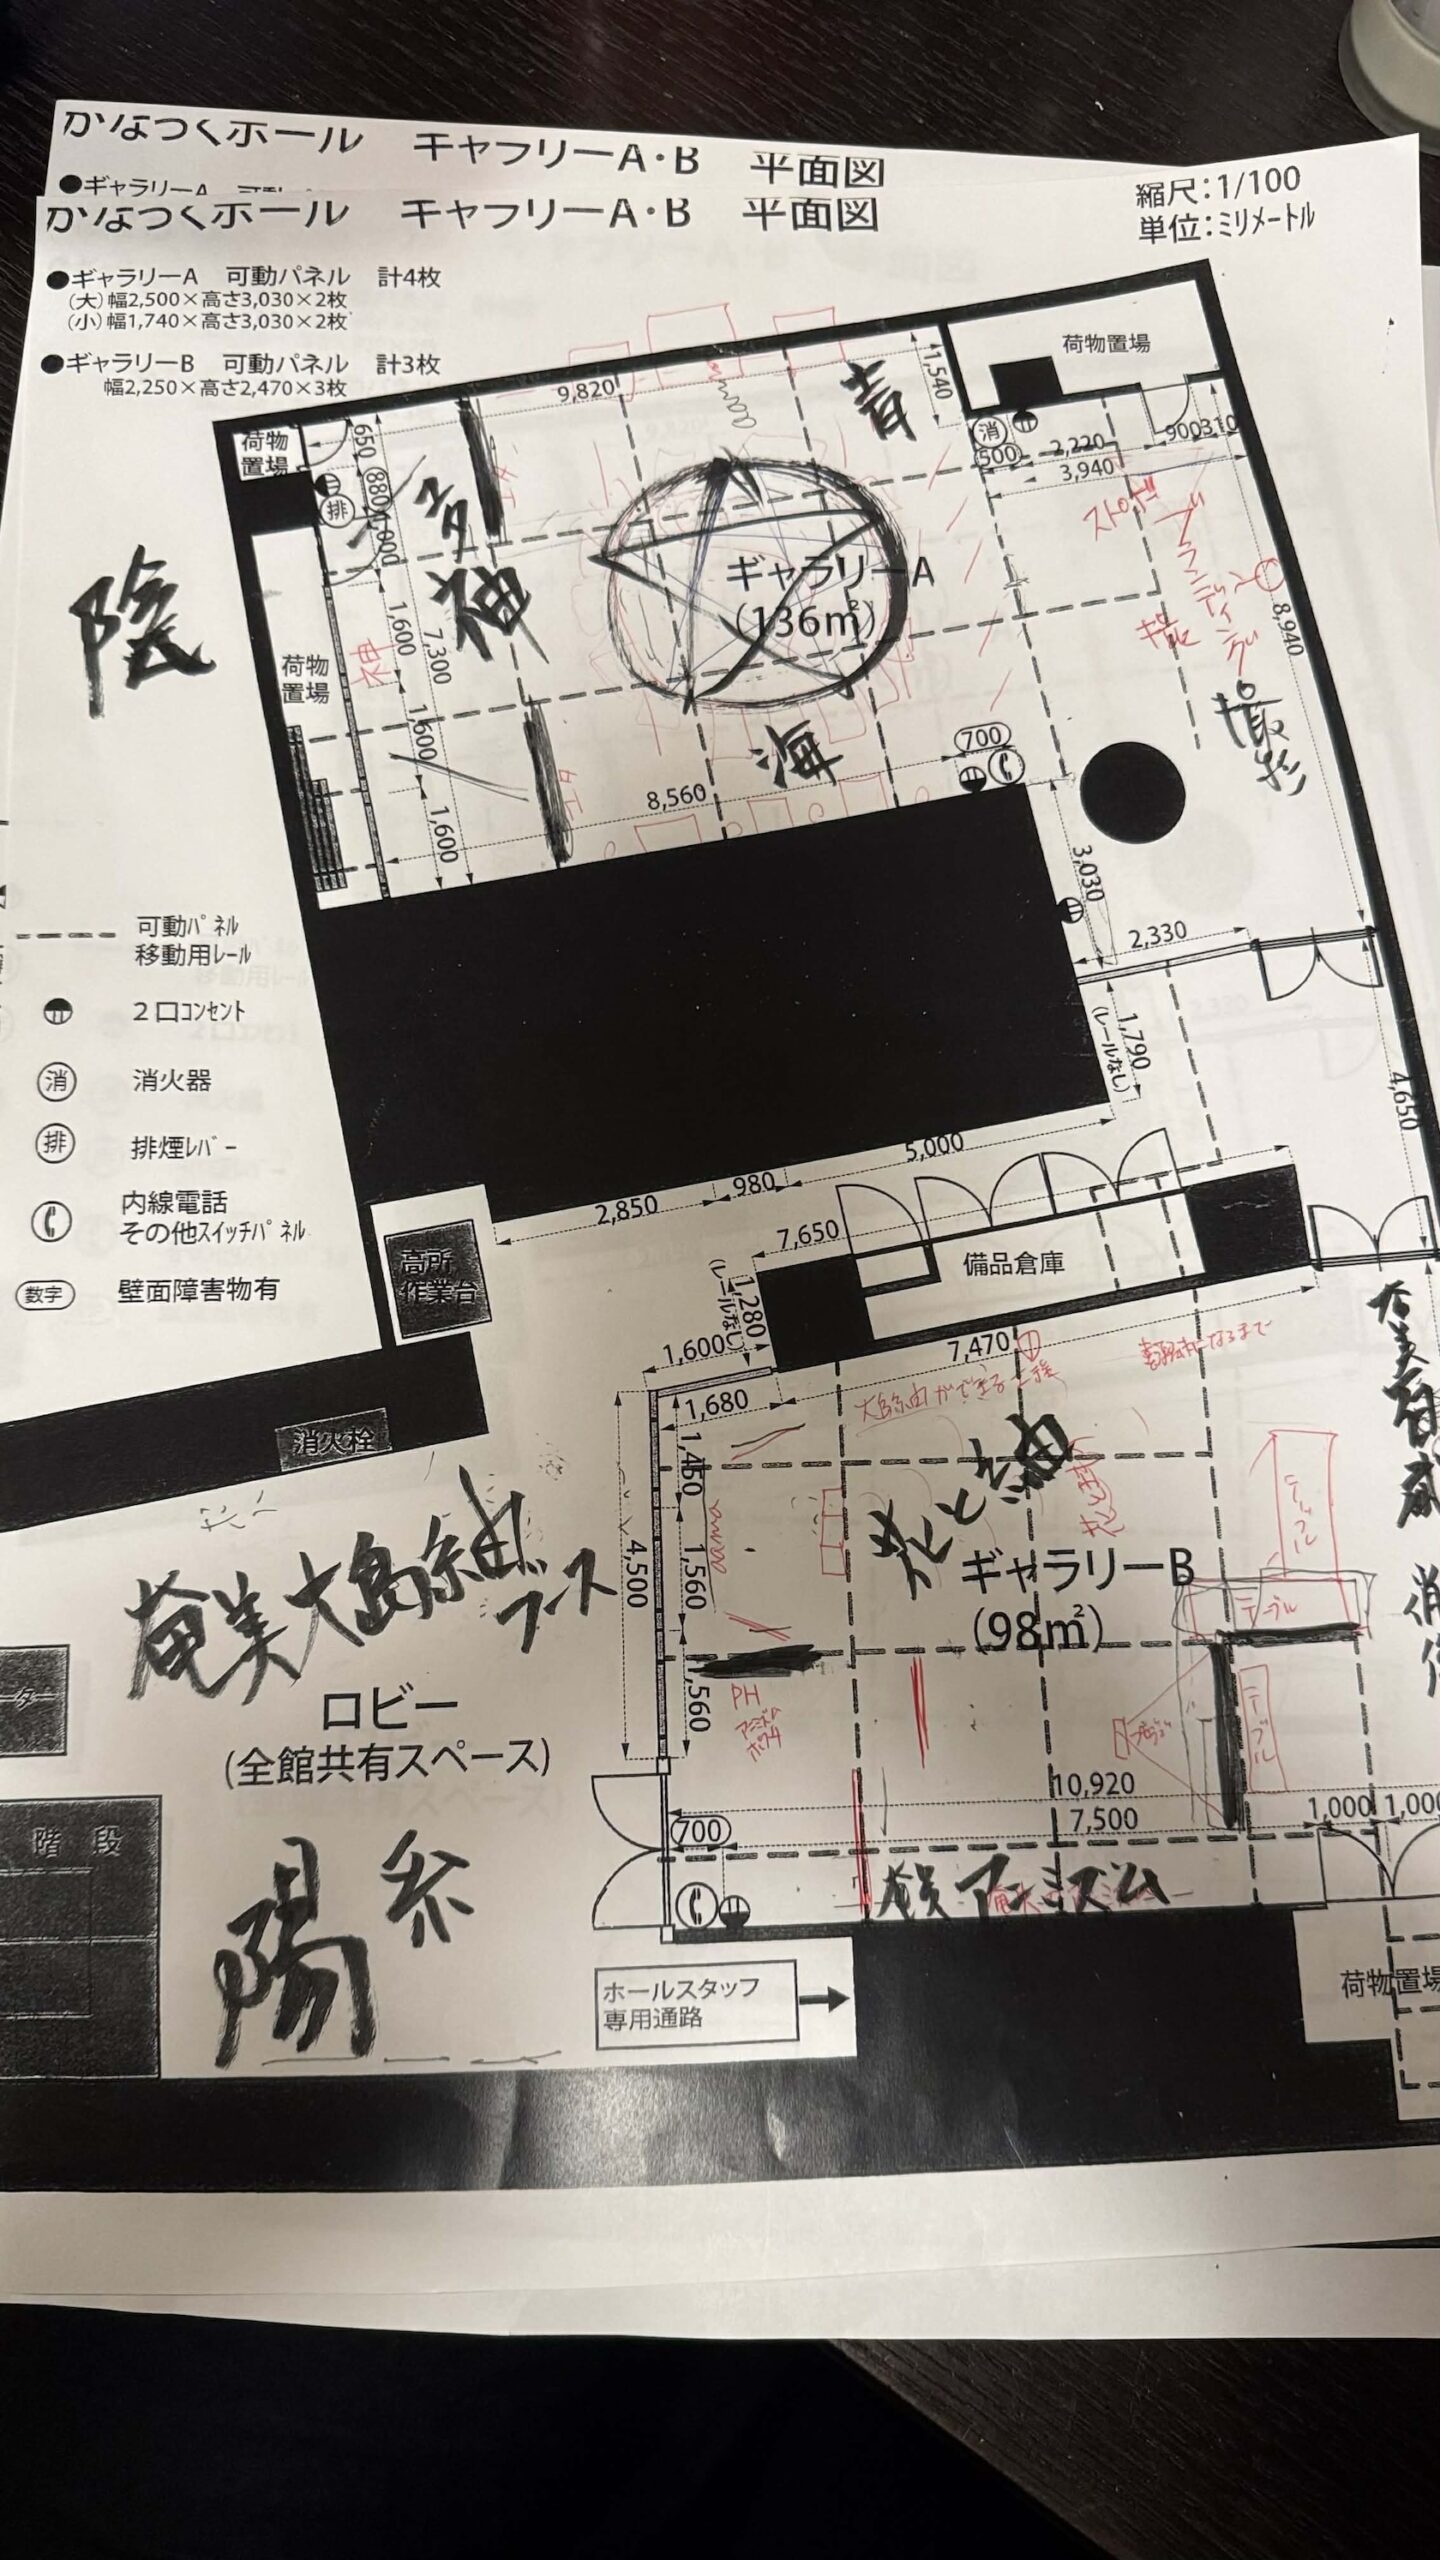 かなっくホール　ギャラリーA・B　平面図
●ギャラリーA
かなっくホール　ギャラリーA・B　平面図
縮尺：1/100
単位：ミリメートル
●ギャラリーA　可動パネル　計4枚
（大）幅2,500×高さ3,030×2枚
（小）幅1,740×高さ3,030×2枚
●ギャラリーB　可動パネル　計3枚
幅2,250×高さ2,470×3枚
荷物置場
9,820
1,540
青
荷物
置場
650
880
排
消
500
2,220
900
310
3,940
陰
神
ギャラリーA
（136㎡）
荷物
置場
神
1,600
7,300
1,600
1,600
8,940
撮影
海
700
8,560
3,030
2,330
1,790
（レールなし）
4,650
可動パネル
移動用レール
2口コンセント
消
消火器
排
排煙レバー
内線電話
その他スイッチパネル
数字
壁面障害物有
5,000
980
2,850
7,650
高所
作業台
備品倉庫
1,280
（レールなし）
1,600
7,470
1,680
消火栓
1,450
4,500
1,560
1,560
花と
ギャラリーB
（98㎡）
テーブル
テーブル
テーブル
奄美大島紬ブース
ロビー
(全館共有スペース)
PH
10,920
7,500
1,000
1,000
700
奄美アニミズム
階 段
陽
糸
ホールスタッフ
専用通路
荷物置場